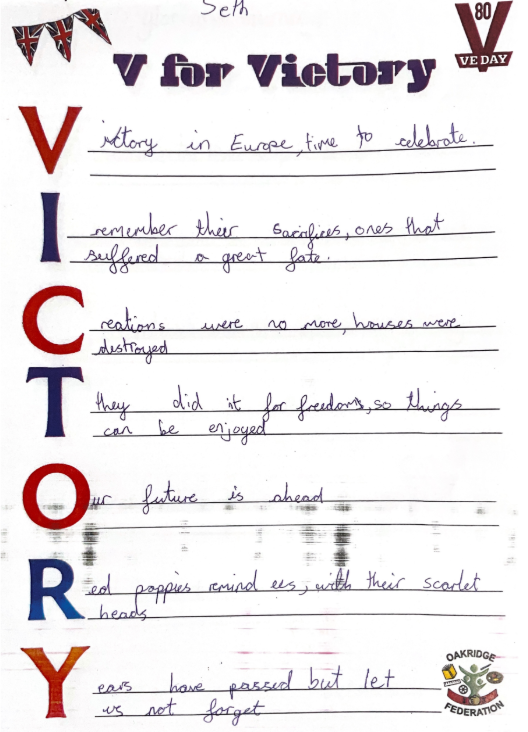 Seth
80
V
VE DAY
V for Victory
Victory in Europe, time to celebrate.
I remember their sacrifices, ones that
suffered a great fate.
Creations were no more, houses were
destroyed
T they did it for freedoms, so things
can be enjoyed
Our future is ahead
Red poppies remind ees, with their scarlet
heads
Years have passed but let
us not forget
OAKRIDGE
FEDERATION